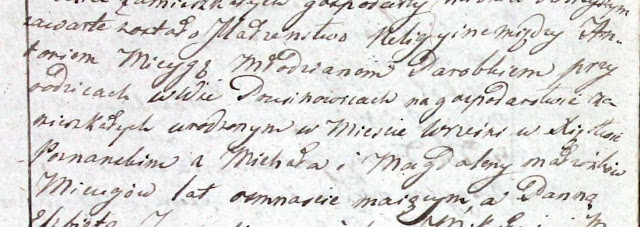 zamieszkałych gospodarzy
zawarte zostało Małżenstwo Religijne między An-
tonim Miczygą Młodzianem Parobkiem przy
rodzicach w Wsi Drusinowicach na gospodarstwie za-
mieszkałych urodzonym w Mieście Wrześni w Xięstwie
Poznanskim z Michała i Magdaleny małżonków
Miczygów lat osmnascie maiącym, a Panną
Elżbietą